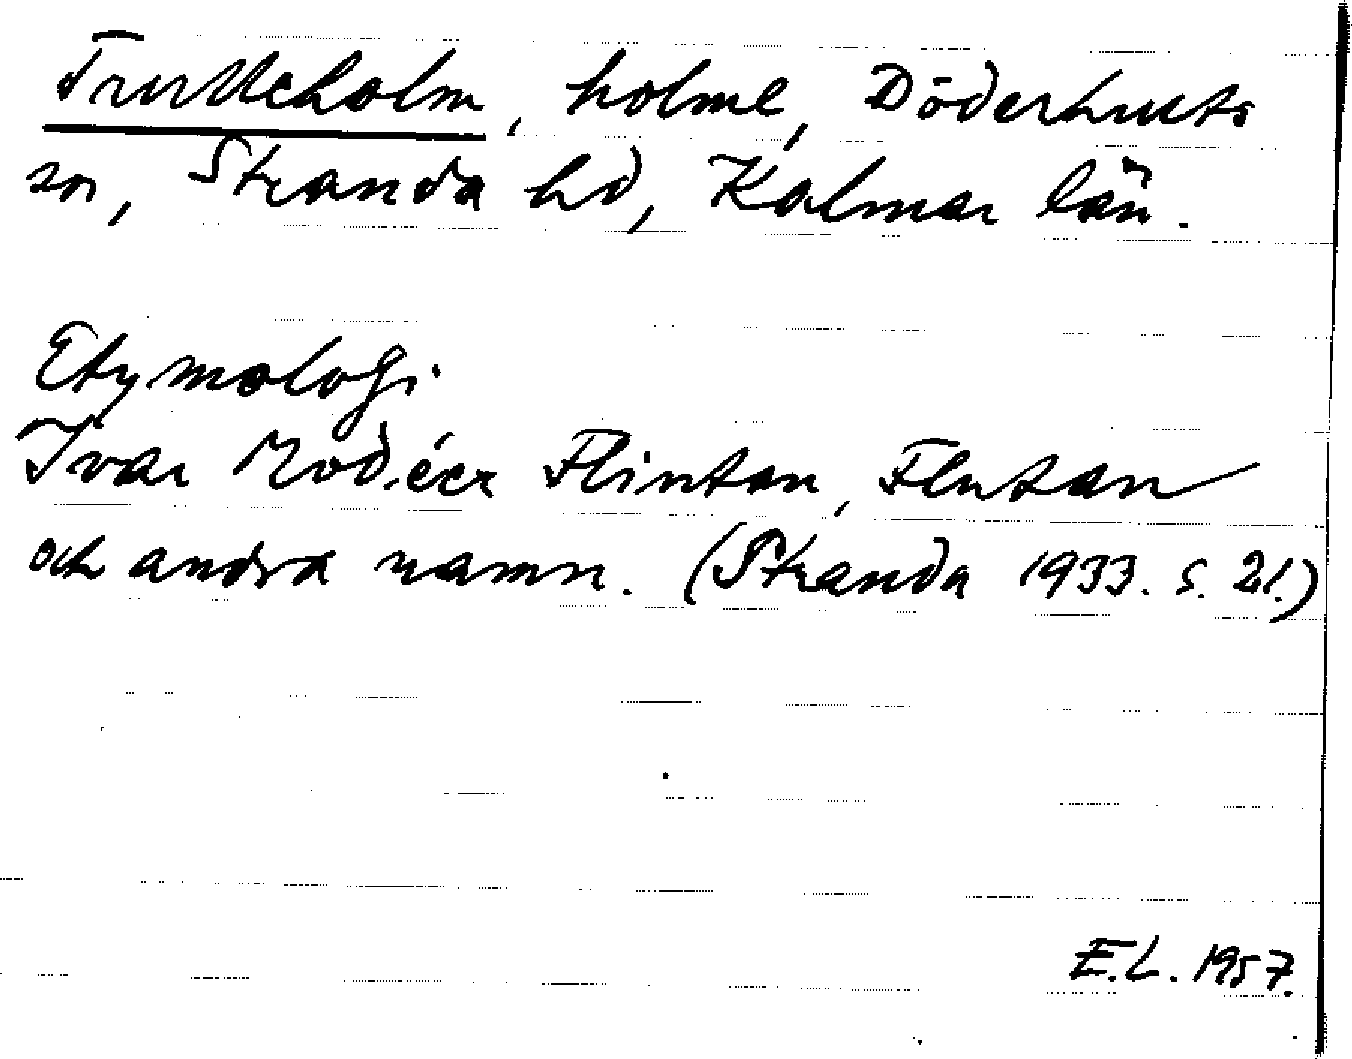 Trutteholm, holme, Döderhults
sn, Stranda hd, Kalmar län.
Etymologi
Ivar Modéer Flintan, Flutan
och andra namn. (Stranda 1933. s. 21.)
E.L. 1957.